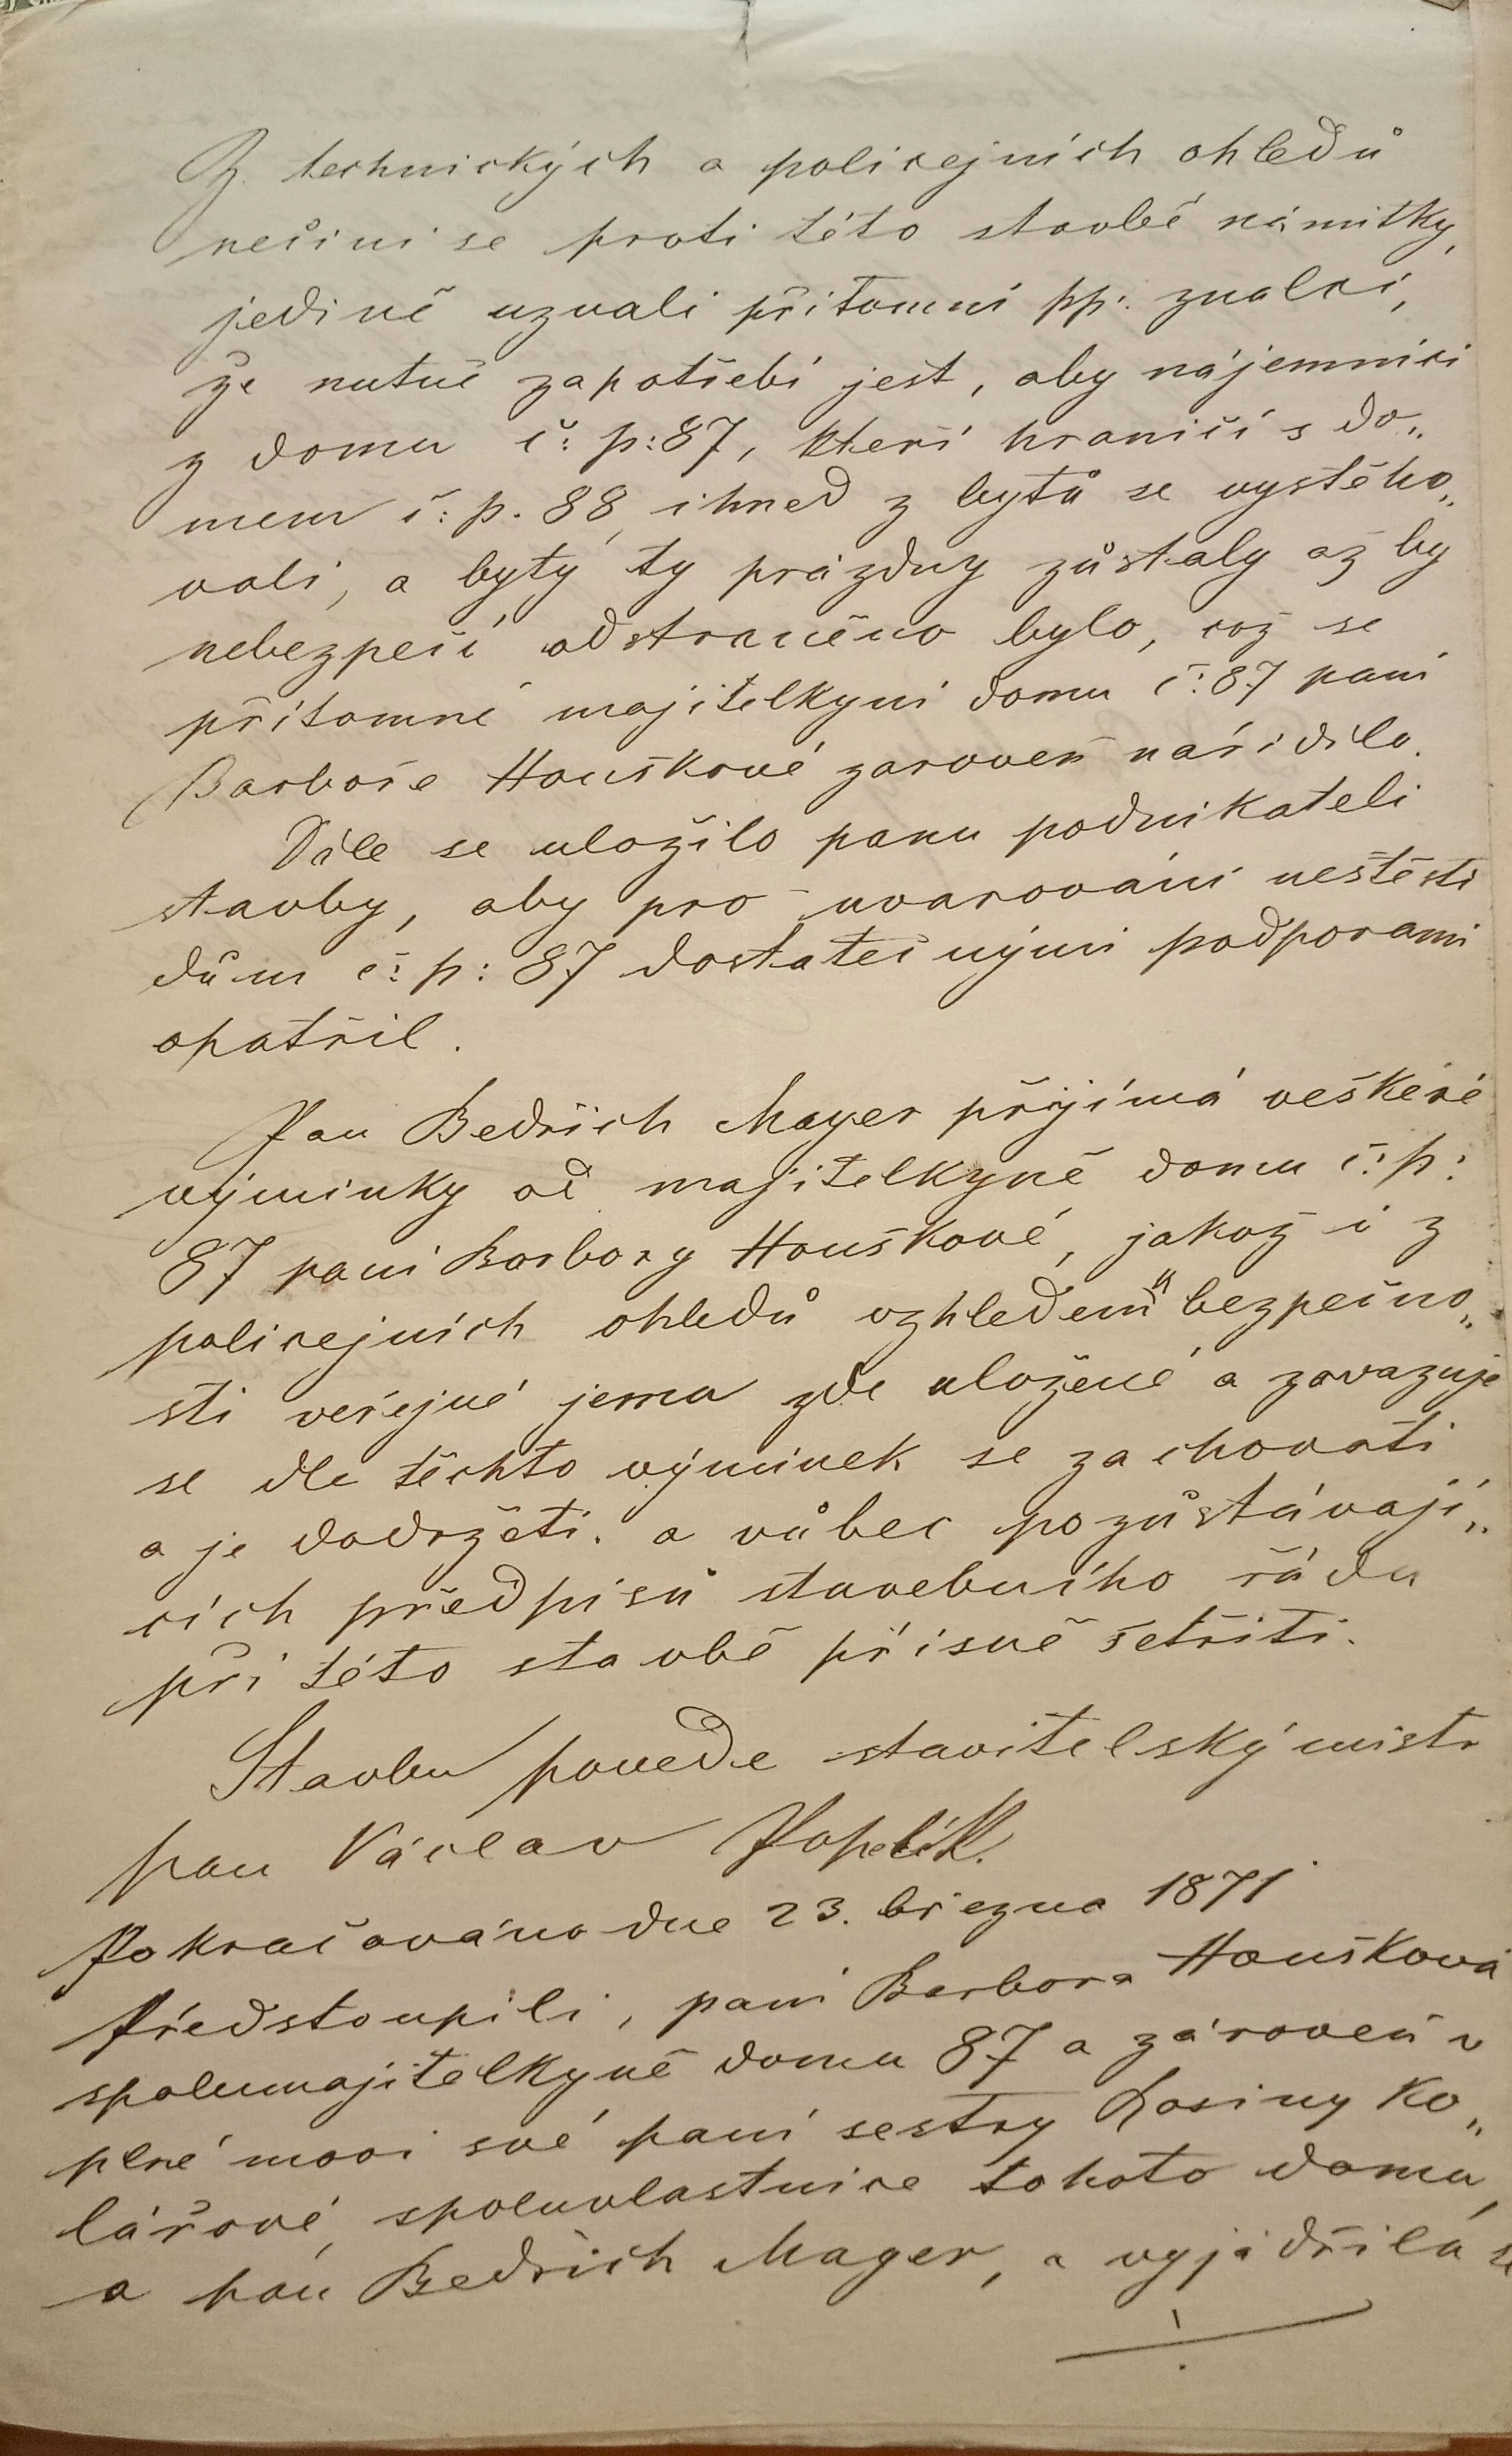 Z technických a policejních ohledů
nečiní se proti této stavbě námitky,
jedině uznali přítomní pp: znalci,
že nutně zapotřebí jest, aby nájemníci
z domu č: p: 87, kteří hraničí s do„
mem č: p. 88, ihned z bytů se vystěho„
vali, a byty ty prázdny zůstaly až by
nebezpečí odstraněno bylo, což se
přítomné majitelkyni domu č: 87 paní
Barboře Houškové zaroveň nařídilo.
Dále se uložilo panu podnikateli
stavby, aby pro uvarování neštěstí
dům č: p: 87 dostatečnými podporami
opatřil.
Pan Bedřich Mayer přijímá veškeré
výminky od majitelkyně domu č: p:
87 paní Barbory Houškové, jakož i z
policejních ohledů vzhledem k bezpečno„
sti veřejné jemu zde uložené a zavazuje
se dle těchto výminek se zachovati
a je dodržeti. a vůbec pozůstávají„
cích předpisů stavebního řádu
při této stavbě přísně šetřiti.
Stavbu povede stavitelský mistr
pan Václav
Pokračováno dne 23. března 1871
Předstoupili, paní Barbora Houšková
spolumajitelkyně domu 87 a zároveň v
plné moci své paní sestry Rosiny Ko„
lářové, spoluvlastnice tohoto domu,
a pan Bedřich Mayer, a vyjádřila se
./.